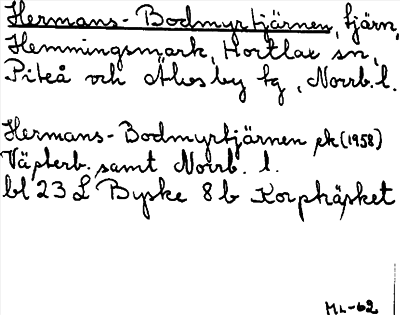 Hermans-Bodmyrtjärnen, tjärn,
Hemmingsmark, Hortlax sn,
Piteå och Älvsby tg, Norrb. l.
Hermans-Bodmyrtjärnen ek (1958)
Västerb. samt Norrb. l.
bl 23 L Byske 8 b Korpkäsket
ML-62